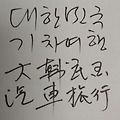 대한민국
기차여행
大韓民国
汽車旅行